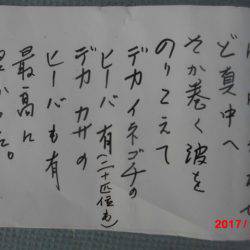 ど真中へ
さか巻く波を
のりこえて
デカイネゴチの
ヒーバ有(二十匹位も)
デカカサの
ヒーバも有
最高に
2017/